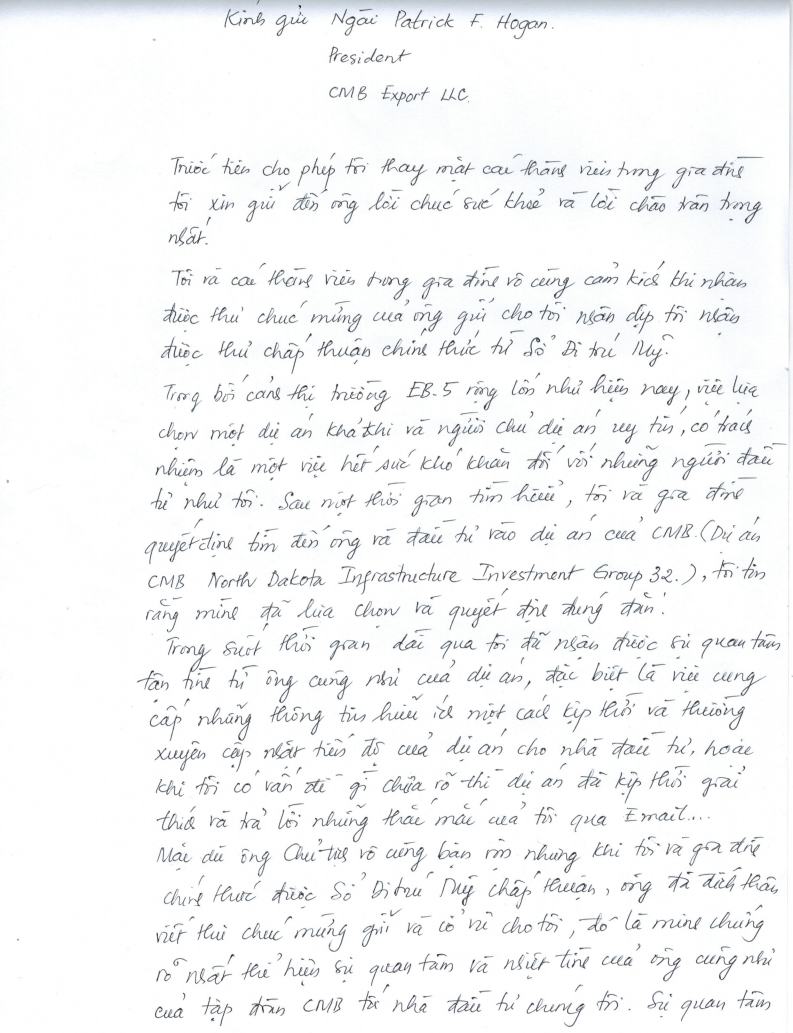 Kính gửi Ngài Patrick F. Hogan.
President
CMB Export LLC.
Trước tiên cho phép tôi thay mặt các thành viên trong gia đình
tôi xin gửi đến ông lời chúc sức khoẻ và lời chào trân trọng
nhất.
Tôi và các thành viên trong gia đình vô cùng cảm kích khi nhận
được thư chúc mừng của ông gửi cho tôi nhân dịp tôi nhận
được thư chấp thuận chính thức từ Sở Di trú Mỹ.
Trong bối cảnh thị trường EB-5 rộng lớn như hiện nay, việc lựa
chọn một dự án khả thi và người chủ dự án uy tín, có trách
nhiệm là một việc hết sức khó khăn đối với những người đầu
tư như tôi. Sau một thời gian tìm hiểu, tôi và gia đình
quyết định tìm đến ông và đầu tư vào dự án của CMB. (Dự án
CMB North Dakota Infrastructure Investment Group 32.), tôi tin
rằng mình đã lựa chọn và quyết định đúng đắn.
Trong suốt thời gian dài qua tôi đã nhận được sự quan tâm
tận tình từ ông cũng như của dự án, đặc biệt là việc cung
cấp những thông tin hữu ích một cách kịp thời và thường
xuyên cập nhật tiến độ của dự án cho nhà đầu tư, hoặc
khi tôi có vấn đề gì chưa rõ thì dự án đã kịp thời giải
thích và trả lời những thắc mắc của tôi qua Email....
Mặc dù ông Chủ tịch vô cùng bận rộn nhưng khi tôi và gia đình
chính thức được Sở Di trú Mỹ chấp thuận, ông đã đích thân
viết thư chúc mừng gửi và cổ vũ cho tôi, đó là minh chứng
rõ nhất thể hiện sự quan tâm và nhiệt tình của ông cũng như
của tập đoàn CMB tới nhà đầu tư chúng tôi. Sự quan tâm